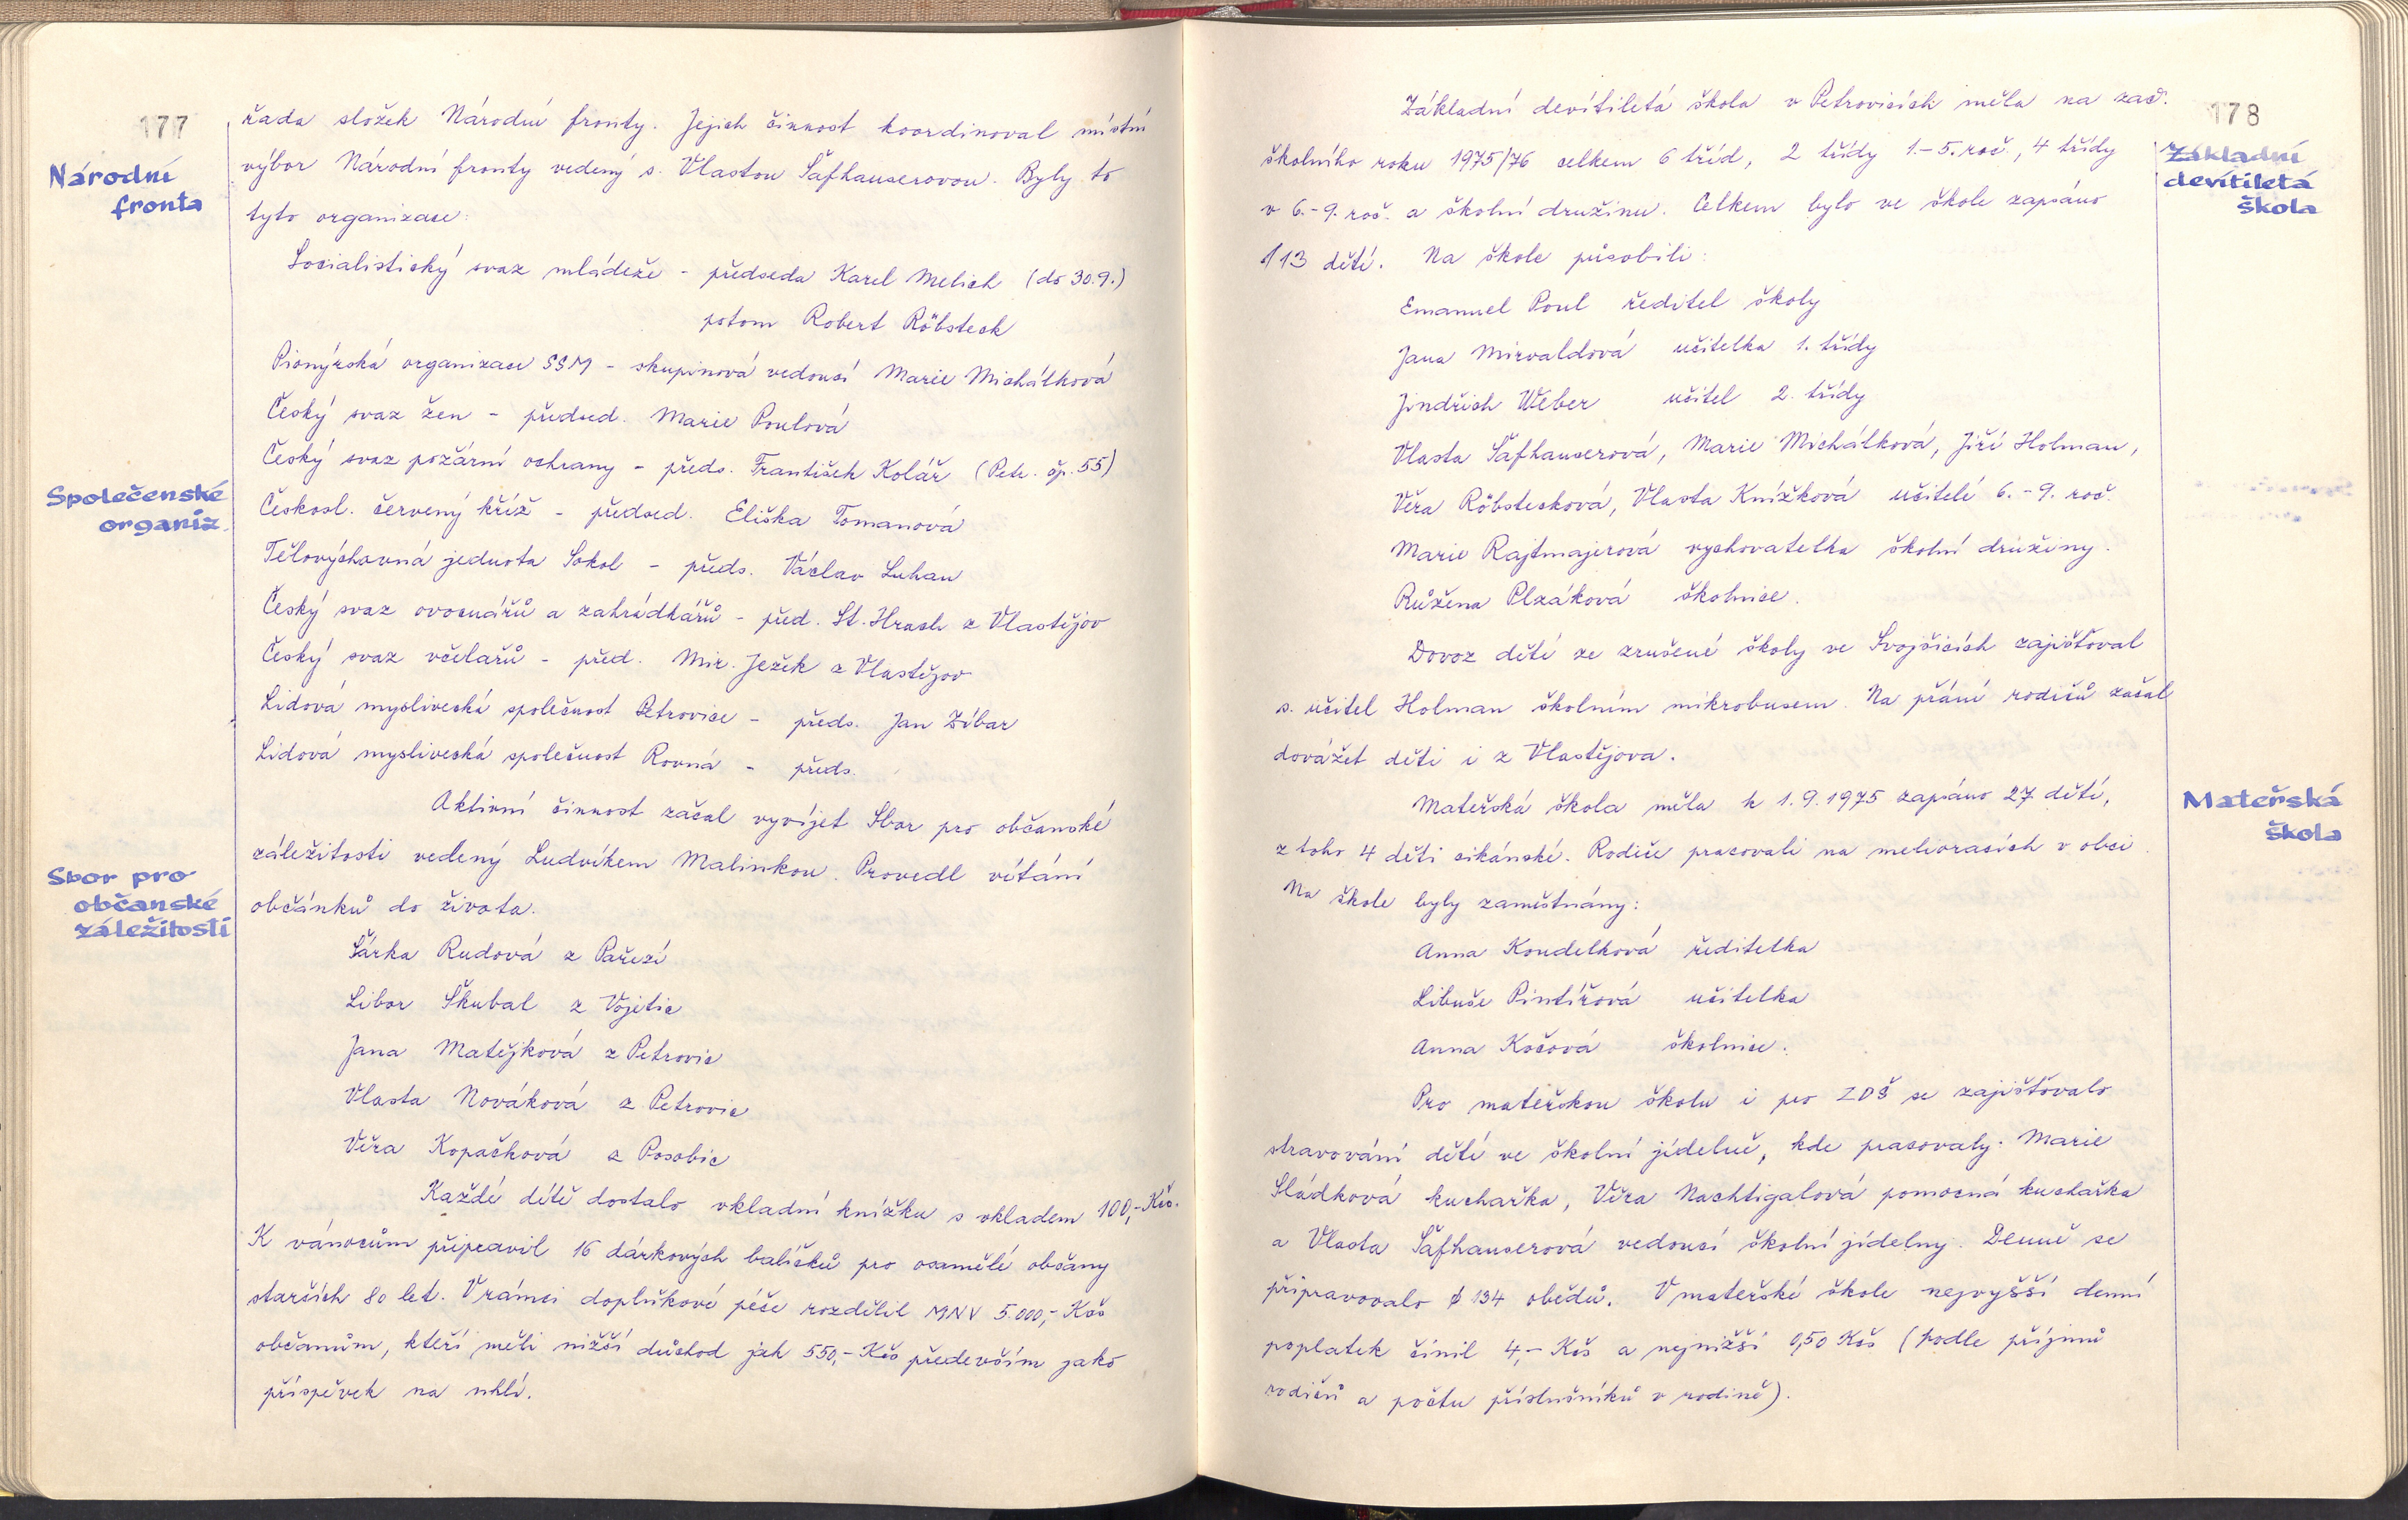 177
Národní
fronta
řada složek Národní fronty. Jejich činnost koordinoval místní
výbor Národní fronty vedený s. Vlastou Šafhauserovou. Byly to
tyto organizace:
Socialistický svaz mládeže - předseda Karel Melich (do 30.9.)
potom Robert Röbsteck
Pionýrská organizace SSM - skupinová vedoucí Marie Michálková
Český svaz žen - předsed. Marie Poulová
Český svaz požární ochrany - předs. František Kolář (Petr. čp. 55)
Společenské
organiz.
Českosl. červený kříž - předsed. Eliška Tomanová
Tělovýchovná jednota Sokol - předs. Václav Luhan
Český svaz ovocnářů a zahrádkářů - před. St. Hrach z Vlastějov
Český svaz včelařů - před. Mir. Ježek z Vlastějov
Lidová myslivecká společnost Petrovice - předs. Jan Zíbar
Lidová myslivecká společnost Rovná - předs.
Aktivní činnost začal vyvíjet Sbor pro občanské
Sbor pro
občanské
záležitosti
záležitosti vedený Ludvíkem Malinkou. Provedl vítání
občánků do života.
Šárka Rudová z Pařezí
Libor Škubal z Vojetic
Jana Matějková z Petrovic
Vlasta Nováková z Petrovic
Věra Kopačková z Posobic
Každé dítě dostalo vkladní knížku s vkladem 100,- Kčs.
K vánocům připravil 16 dárkových balíčků pro osamělé občany
starších 80 let. V rámci doplňkové péče rozdělil MNV 5.000,- Kčs
občanům, kteří měli nižší důchod jak 550,- Kčs především jako
příspěvek na uhlí.
178
Základní
devítiletá
škola
Základní devítiletá škola v Petrovicích měla na zač.
školního roku 1975/76 celkem 6 tříd, 2 třídy 1.-5. roč., 4 třídy
v 6.-9. roč. a školní družinu. Celkem bylo ve škole zapsáno
113 dětí. Na škole působili:
Emanuel Poul ředitel školy
Jana Mirvaldová učitelka 1. třídy
Jindřich Weber učitel 2. třídy
Vlasta Šafhauserová, Marie Michálková, Jiří Holman,
Věra Röbstecková, Vlasta Knížková učitelé 6.-9. roč.
Marie Rajtmajerová vychovatelka školní družiny.
Růžena Plzáková školnice.
Dovoz dětí ze zrušené školy ve Svojšicích zajišťoval
s. učitel Holman školním mikrobusem. Na přání rodičů začal
dovážet děti i z Vlastějova.
Mateřská
škola
Mateřská škola měla k 1.9.1975 zapsáno 27 dětí,
z toho 4 děti cikánské. Rodiče pracovali na melioracích v obci.
Na škole byly zaměstnány:
Anna Koudelková ředitelka
Libuše Pintířová učitelka
Anna Kočová školnice.
Pro mateřskou školu i pro ZDŠ se zajišťovalo
stravování dětí ve školní jídelně, kde pracovaly: Marie
Sládková kuchařka, Věra Nachtigalová pomocná kuchařka
a Vlasta Šafhauserová vedoucí školní jídelny. Denně se
připravovalo ϕ 134 obědů. V mateřské škole nejvyšší denní
poplatek činil 4,- Kčs a nejnižší 0,50 Kčs (podle příjmů
rodičů a počtu příslušníků v rodině).